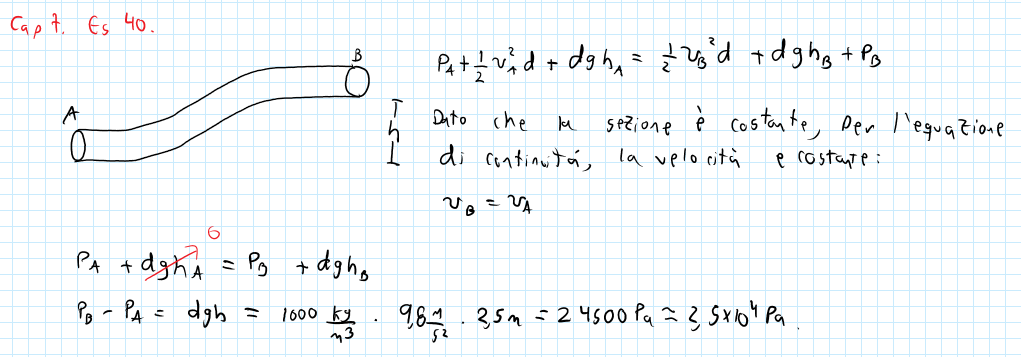 Cap 7. Es 40.
A
B
h
P_A + 1/2 v_A^2 d + dgh_A = 1/2 v_B^2 d + dgh_B + P_B
Dato che la sezione è costante, per l'equazione
di continuitá, la velocitá e costante:
v_B = v_A
0
P_A + dgh_A = P_B + dgh_B
P_B - P_A = dgh = 1000 kg/m3 . 9,8 m/s2 . 2,5m = 24500 Pa ≃ 2,5x10^4 Pa.